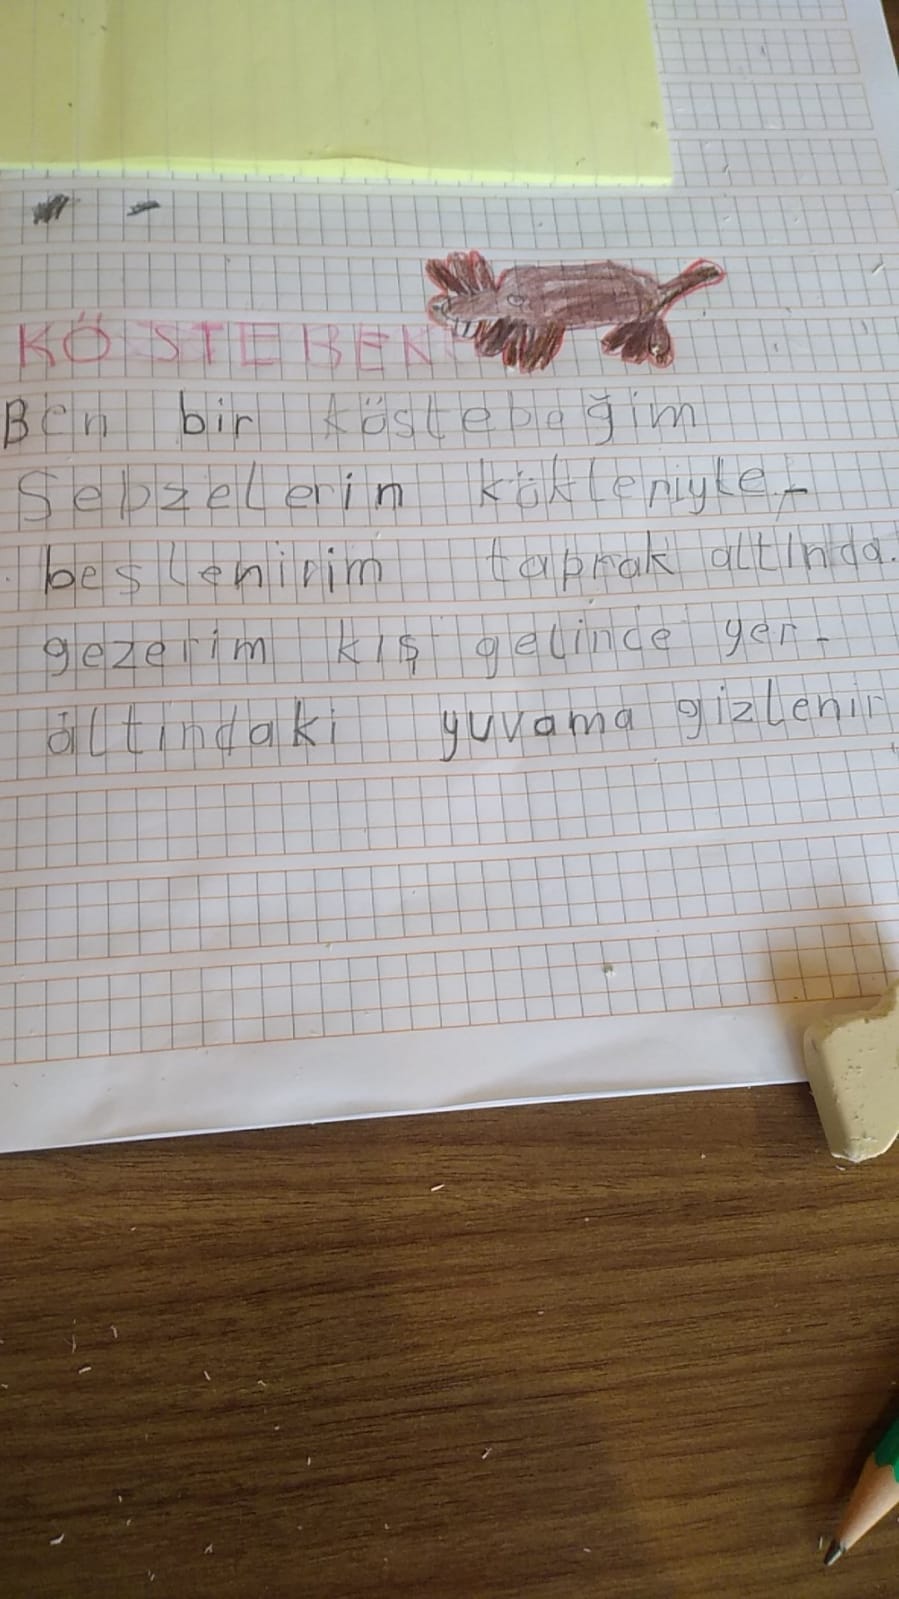 KÖSTEBEK
Ben bir köstebeğim
Sebzelerin kökleriyle-
beslenirim toprak altında.
gezerim kış gelince yer-
altındaki yuvama gizlenir